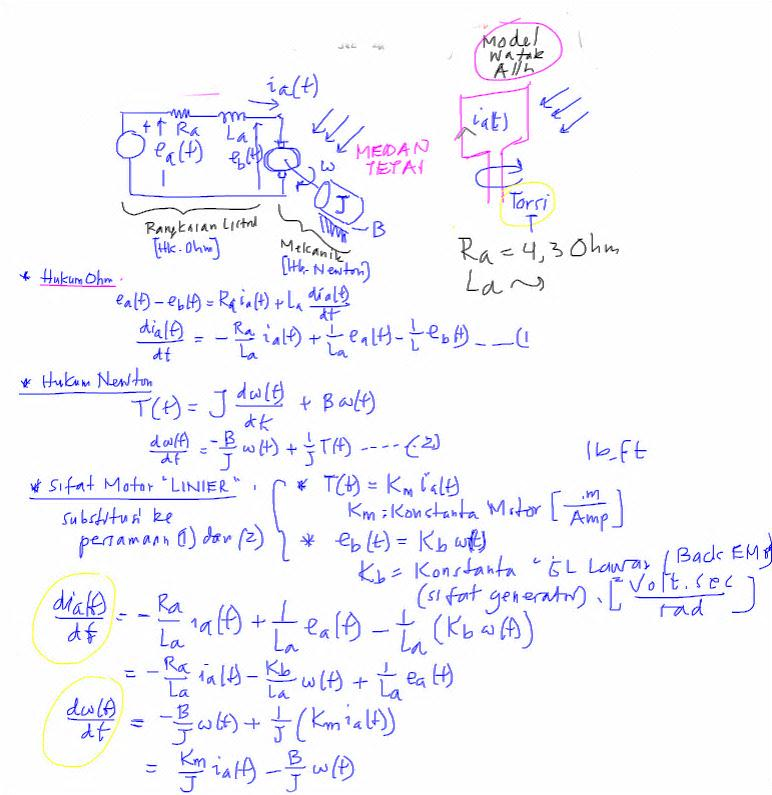 Model
Watak
Allh
ia(t)
+ ↑ Ra La
ea(t)
eb(t)
ω
MEDAN
TETAP
J
B
ia(t)
Torsi
T
Rangkaian Listrik
[Hk. Ohm]
Mekanik
[Hk. Newton]
Ra = 4,3 Ohm
La ~
* Hukum Ohm.
ea(t) - eb(t) = Ra ia(t) + La dia(t)/dt
dia(t)/dt = - Ra/La ia(t) + 1/La ea(t) - 1/L eb(t) ---(1
* Hukum Newton
T(t) = J dω(t)/dt + B ω(t)
dω(t)/dt = -B/J ω(t) + 1/J T(t) ---- (2)
lb.ft
* Sifat Motor "LINIER".
substitusi ke
persamaan (1) dan (2)
* T(t) = Km ia(t)
Km : Konstanta Motor [.m/Amp]
* eb(t) = Kb ω(t)
Kb = Konstanta GGL Lawan (Back EMF)
(sifat generator). [Volt.sec/rad]
dia(t)/dt = - Ra/La ia(t) + 1/La ea(t) - 1/La (Kb ω(t))
= - Ra/La ia(t) - Kb/La ω(t) + 1/La ea(t)
dω(t)/dt = -B/J ω(t) + 1/J (Km ia(t))
= Km/J ia(t) - B/J ω(t)